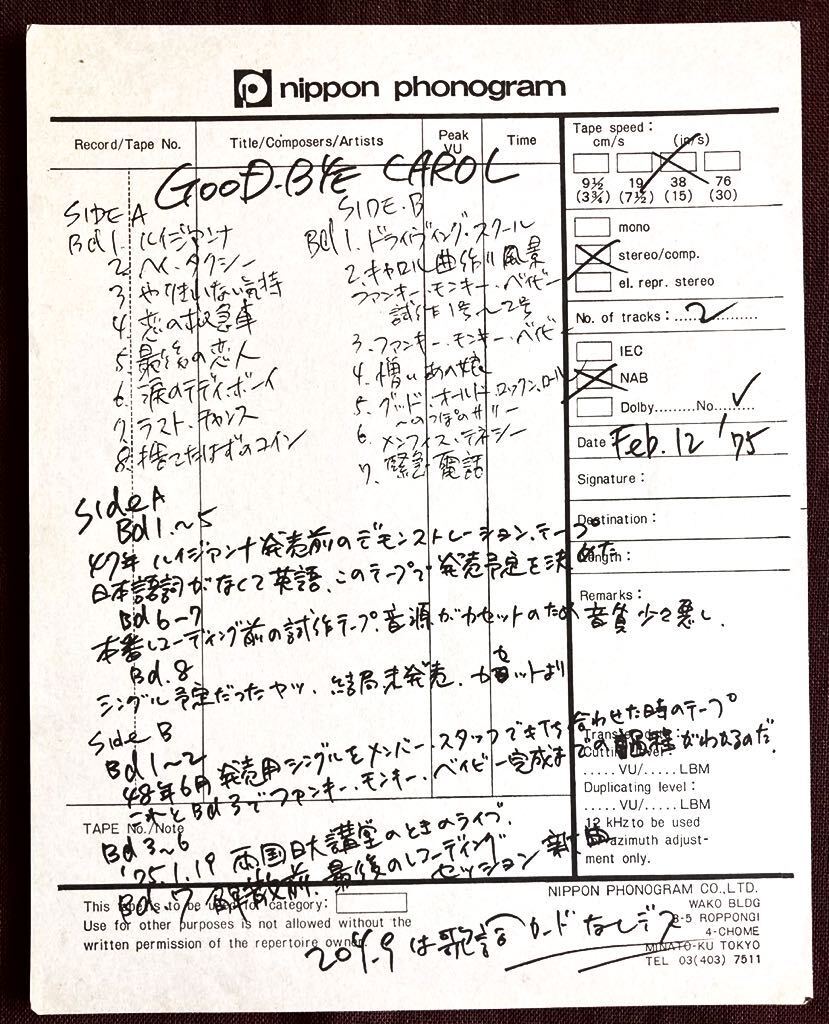 nippon phonogram
Record/Tape No. Title/Composers/Artists Peak VU Time
GOOD-BYE CAROL
SIDE A
Bd 1. ルイジアンナ
2. ヘイ・タクシー
3. やりきれない気持
4. 恋の救急車
5. 最後の恋人
6. 涙のテディ・ボーイ
7. ラスト・チャンス
8. 捨てたはずのコイン
SIDE.B
Bd 1. ドライヴィング・スクール
2. キャロル曲作り風景
ファンキー・モンキー・ベイビー
試作1号〜2号
3. ファンキー・モンキー・ベイビー
4. 憎いあの娘
5. グッド・オールド・ロックン・ロール
〜のっぽのサリー
6. メンフィス・テネシー
7. 緊急電話
Side A
Bd 1.〜5
47年 ルイジアンナ発売前のデモンストレーション・テープ
日本語詞がなくて英語、このテープで発売予定を決めた
Bd 6〜7
本番レコーディング前の試作テープ、音源がカセットのため音質少々悪し.
Bd.8
シングル予定だったヤツ、結局未発売、カセットより
Side B
Bd 1〜2
48年6月発売用シングルをメンバー・スタッフで打ち合わせた時のテープ
これとBd 3でファンキー・モンキー・ベイビー完成までの過程がわかるのだ.
Bd 3〜6
'75.1.19 両国日大講堂のときのライブ.
Bd.7 解散前、最後のレコーディングセッション 新曲
は歌詞カードなしデス
Tape speed :
cm/s (in/s)
9½ 19 38 76
(3¾) (7½) (15) (30)
mono
stereo/comp.
el. repr. stereo
No. of tracks : 2
IEC
NAB
Dolby.........No.........
Date : Feb. 12 '75
Signature :
Destination :
Length :
Remarks :
Duplicating level :
..... VU/..... LBM
..... VU/..... LBM
12 kHz to be used
azimuth adjust-
ment only.
TAPE No./Note
This is to be used for category:
Use for other purposes is not allowed without the
written permission of the repertoire owner.
NIPPON PHONOGRAM CO.,LTD.
WAKO BLDG
8-5 ROPPONGI
4-CHOME
MINATO-KU TOKYO
TEL 03(403) 7511